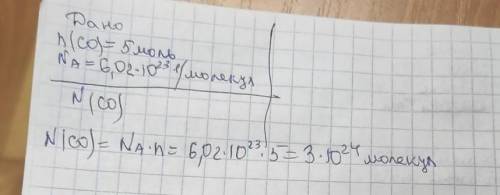 Дано
n(CO)=5моль
NA=6,02·10²³ 1/молекул
N(CO)
N(CO)=NA·n=6,02·10²³·5=3·10²⁴ молекул